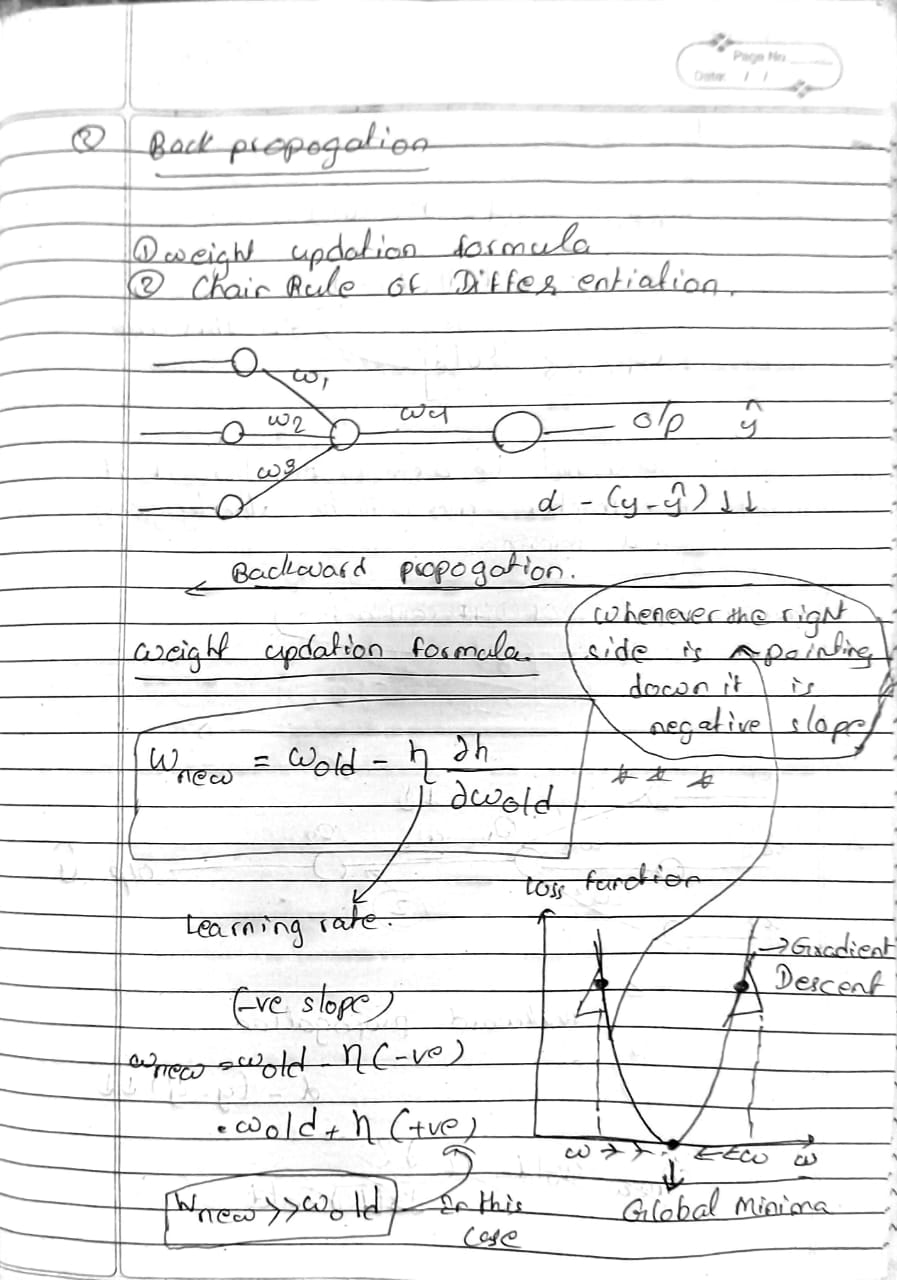 Page No
Date: / /
② Back propogation
① weight updation formula
② Chain Rule of Differentiation.
w1
w2
w3
w4
o/p ŷ
d - (y-ŷ) ↓↓
← Backward propogation.
Whenever the right
side is pointing
down it is
negative slope
weight updation formula
Wnew = wold - η ∂h/∂wold
* * *
Learning rate.
Loss function
→ Gradient
Descent
(-ve slope)
wnew = wold - η (-ve)
= wold + η (+ve)
w → > ← ← w w
Wnew >> wold
In this
case
Global Minima